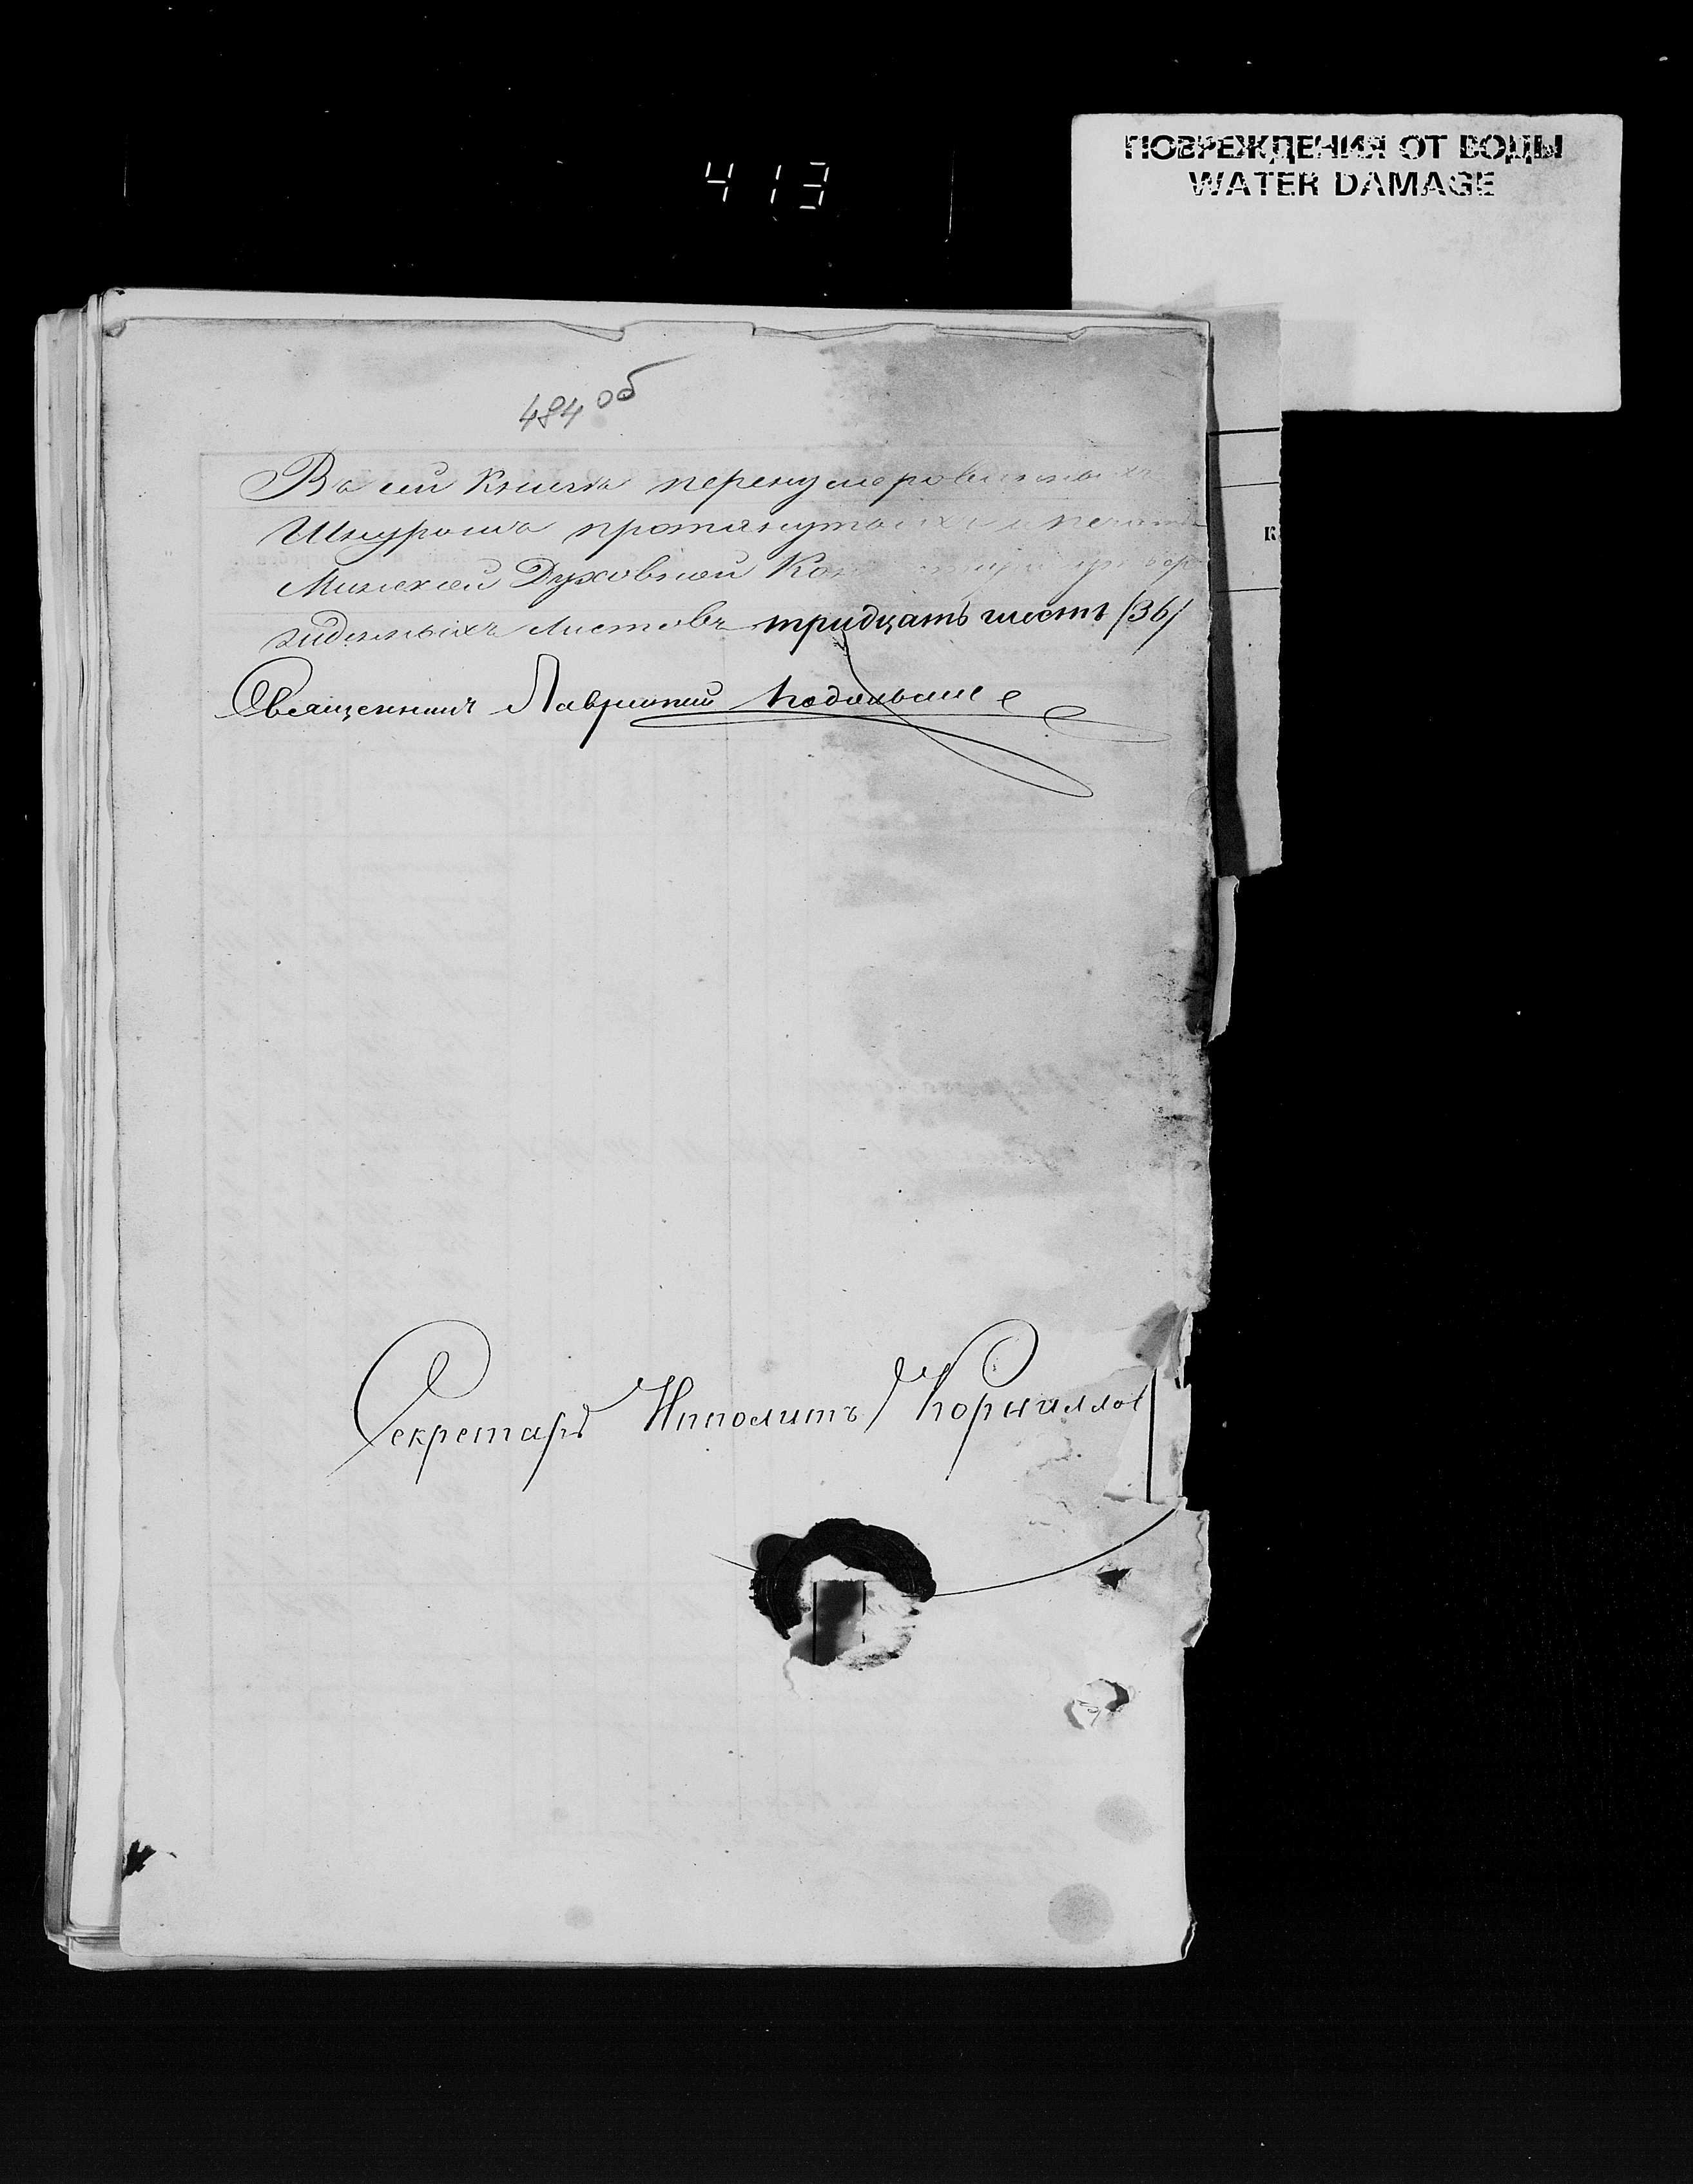 413
ПОВРЕЖДЕНИЯ ОТ ВОДЫ
WATER DAMAGE
484 об
Въ сей книгѣ перенумерованныхъ
Шнуромъ протянутыхъ и печатью
Минской Духовной
листовъ тридцать шесть /36/
Священникъ Лаврентій
Секретарь Ипполитъ Корнилов
К